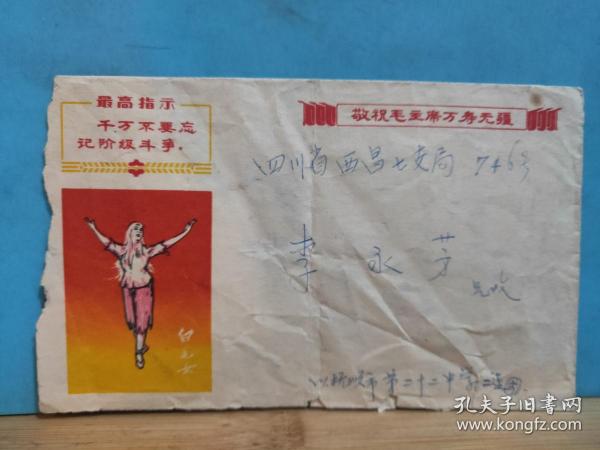 最高指示
千万不要忘
记阶级斗争。
敬祝毛主席万寿无疆
四川省西昌七支局 746号
李永芳
白毛女
市第二十二中学二连
孔夫子旧书网
www.kongfz.com